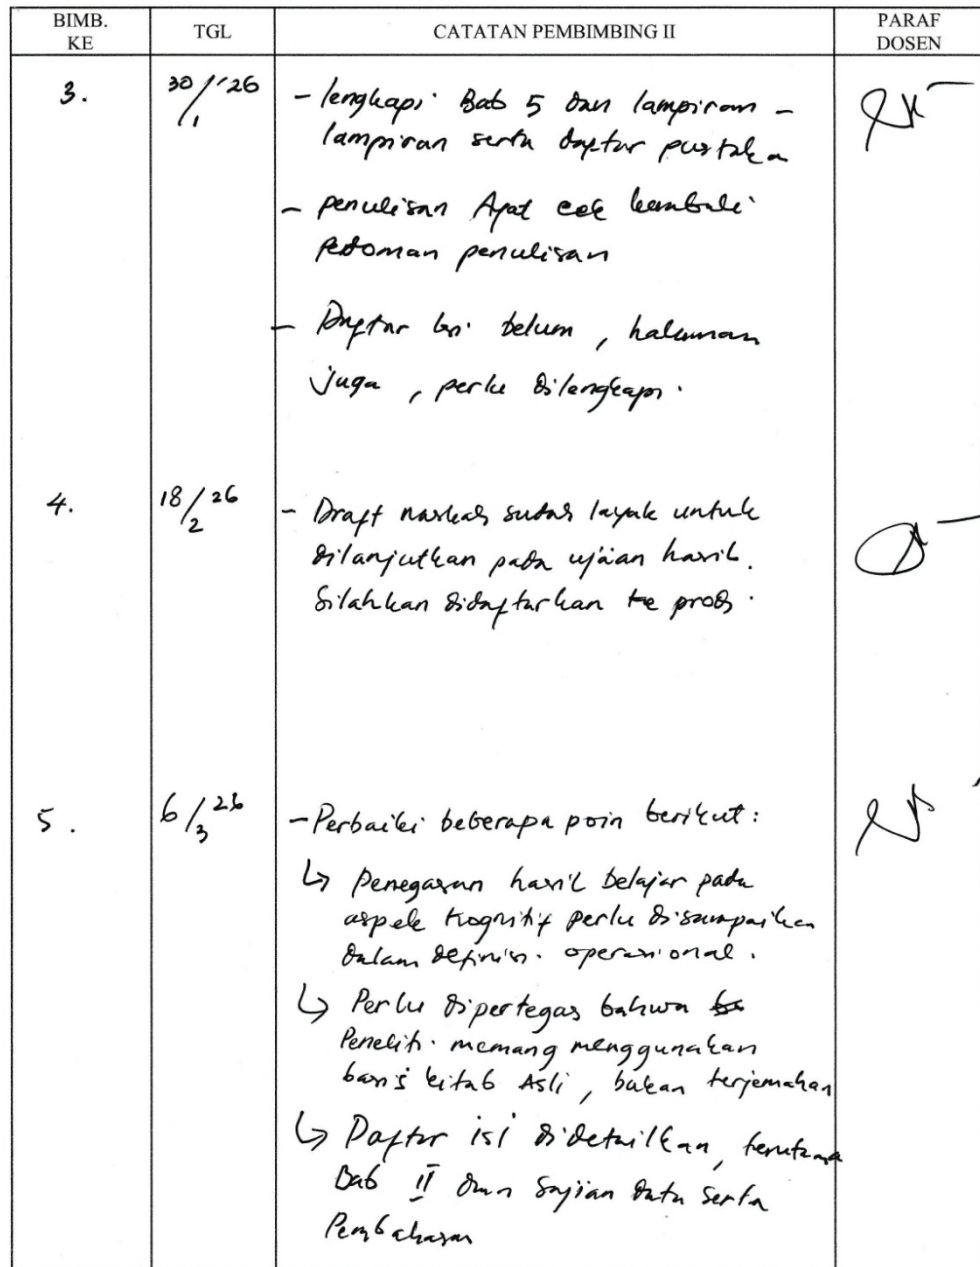 BIMB. KE TGL CATATAN PEMBIMBING II PARAF DOSEN
3. 30/1 '26 - lengkapi Bab 5 dan lampiran -
lampiran serta daftar pustaka
- penulisan Ayat cek kembali
pedoman penulisan
- Daftar isi belum, halaman
juga, perlu dilengkapi.
4. 18/2 26 - Draft naskah sudah layak untuk
dilanjutkan pada ujian hasil.
Silahkan didaftarkan ke prodi.
5. 6/3 26 - Perbaiki beberapa poin berikut:
↳ Penegasan hasil belajar pada
aspek kognitif perlu disampaikan
dalam definisi operasional.
↳ Perlu dipertegas bahwa
Peneliti memang menggunakan
basis kitab Asli, bukan terjemahan
↳ Daftar isi didetailkan, terutama
Bab II dan Sajian data serta
Pembahasan